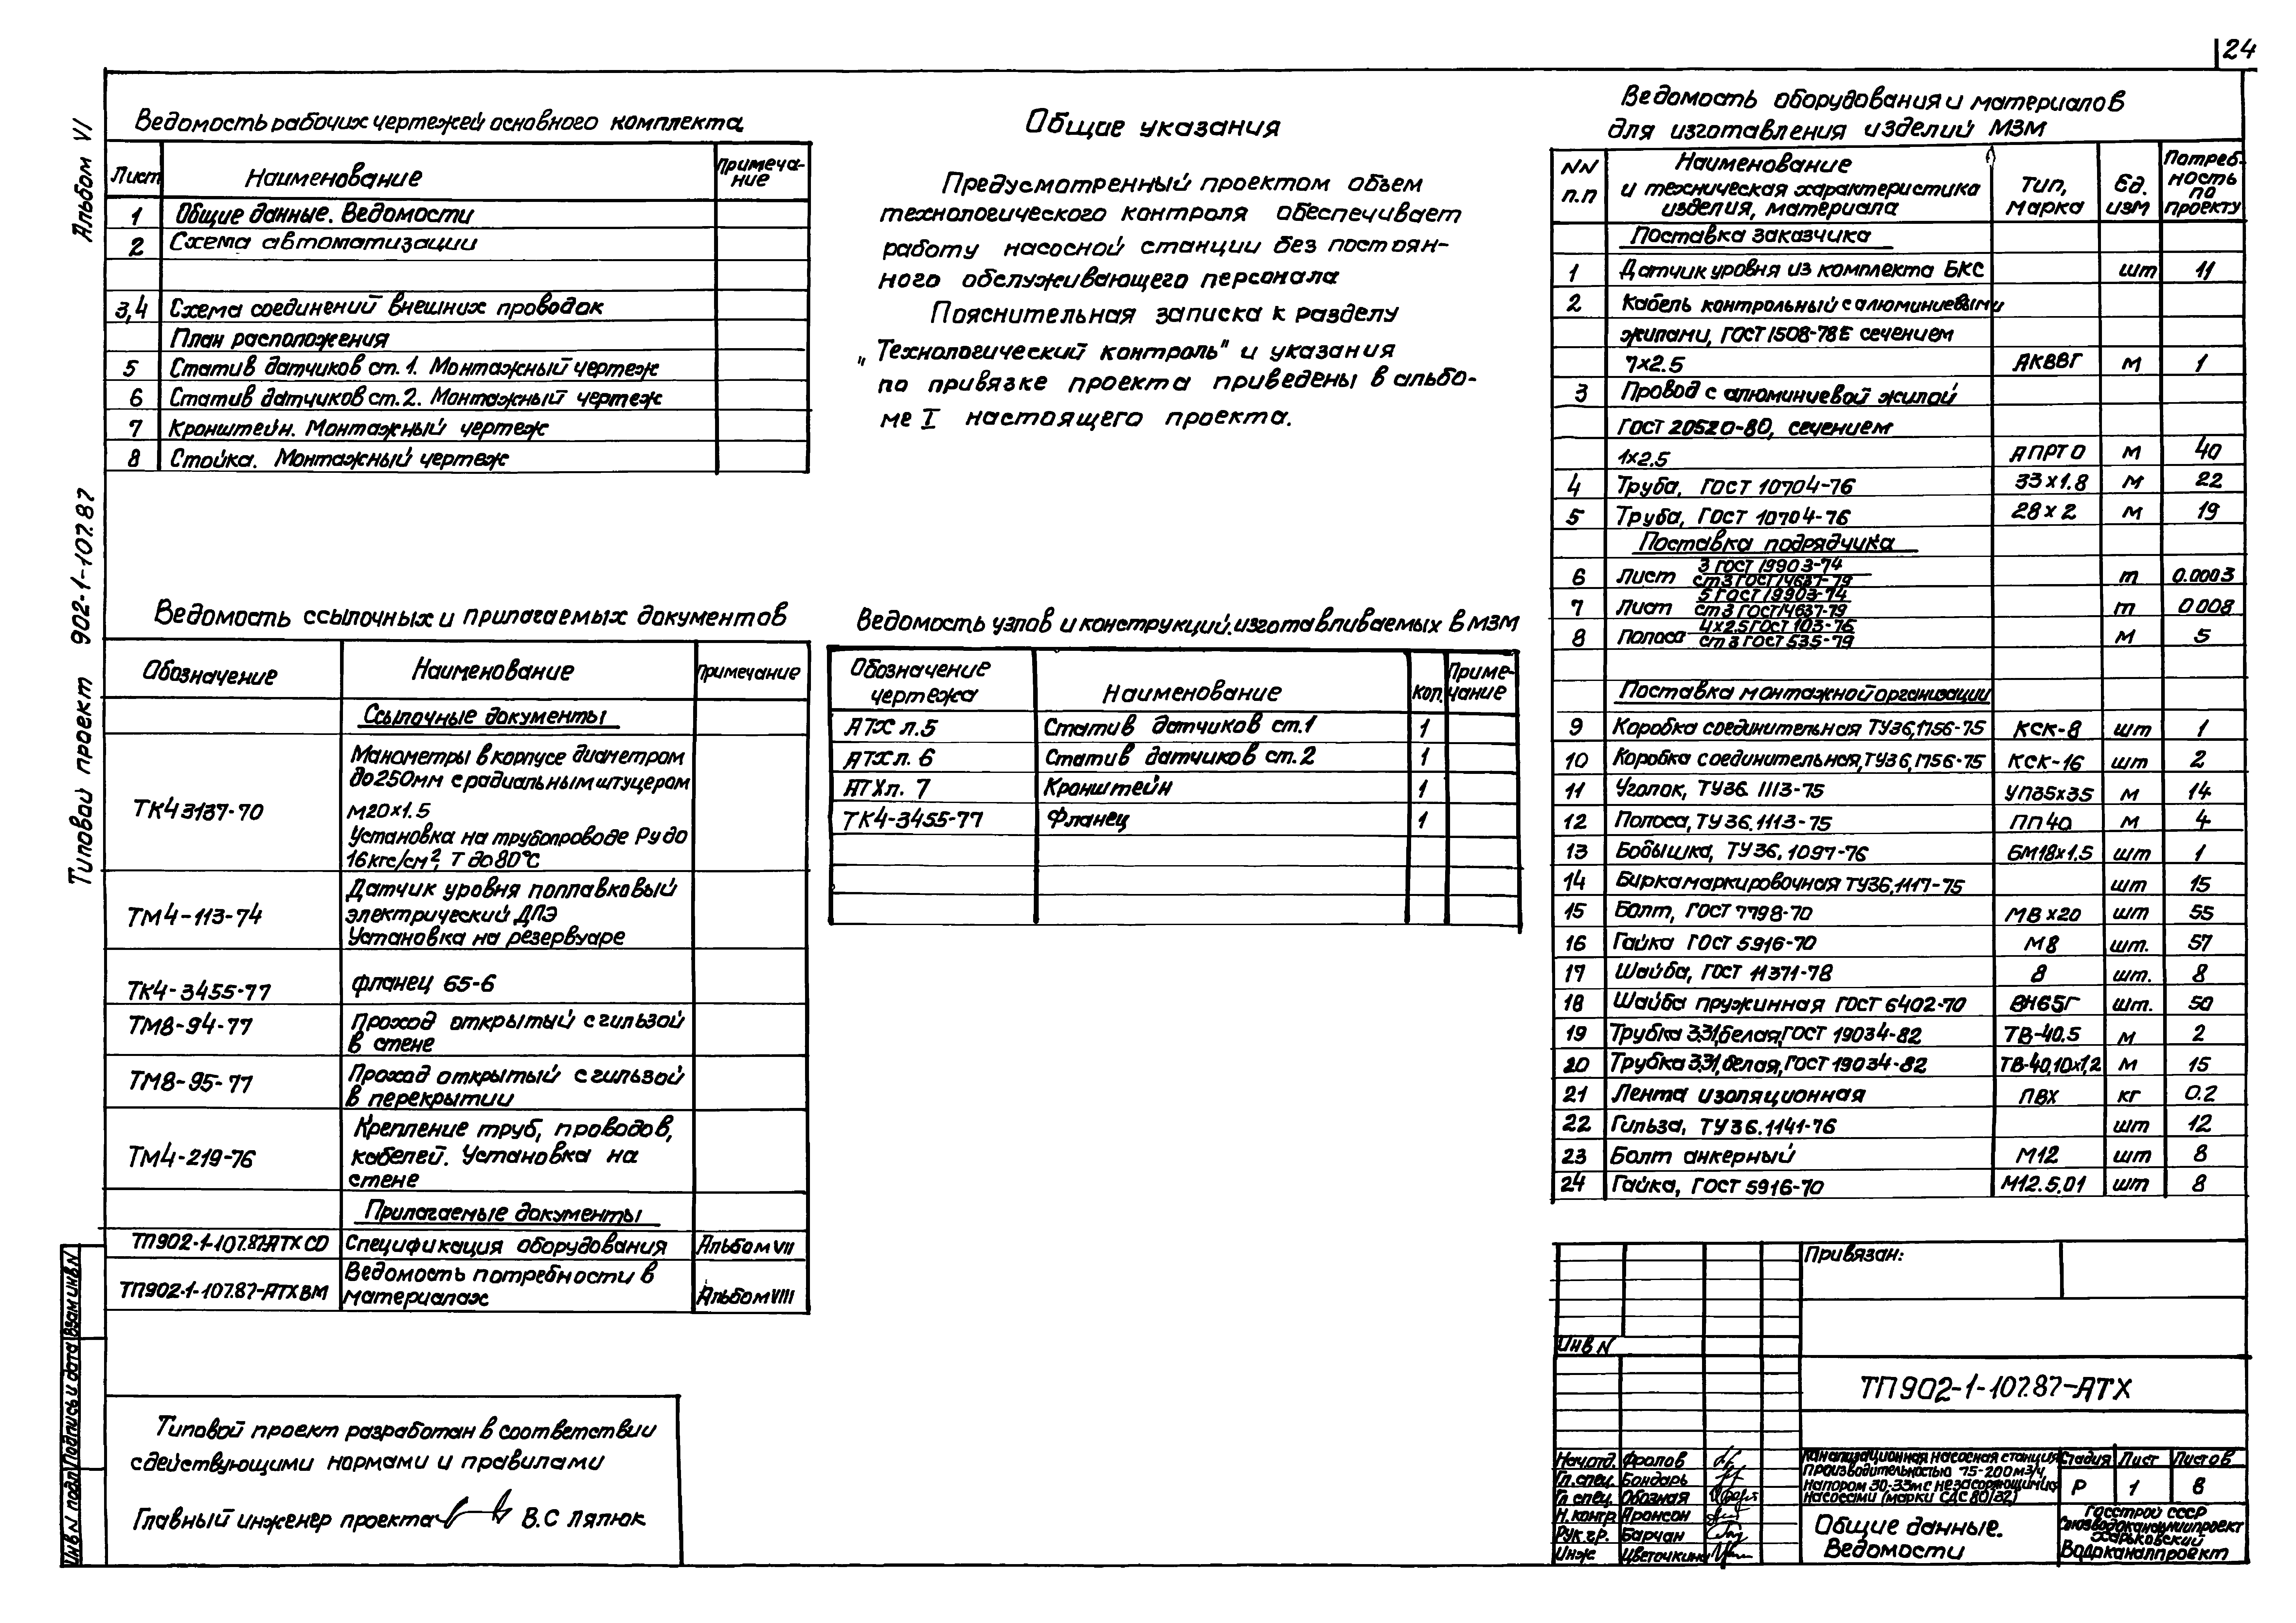 24
Альбом VI
Типовой проект 902-1-107.87
Ведомость рабочих чертежей основного комплекта
Лист Наименование Примеча-
ние
1 Общие данные. Ведомости
2 Схема автоматизации
3,4 Схема соединений внешних проводок
План расположения
5 Статив датчиков ст. 1. Монтажный чертеж
6 Статив датчиков ст. 2. Монтажный чертеж
7 Кронштейн. Монтажный чертеж
8 Стойка. Монтажный чертеж
Общие указания
Предусмотренный проектом объем
технологического контроля обеспечивает
работу насосной станции без постоян-
ного обслуживающего персонала
Пояснительная записка к разделу
„Технологический контроль" и указания
по привязке проекта приведены в альбо-
ме I настоящего проекта.
Ведомость ссылочных и прилагаемых документов
Обозначение Наименование Примечание
Ссылочные документы
Манометры в корпусе диаметром
до 250мм с радиальным штуцером
ТК4 3137-70 М20х1.5
Установка на трубопроводе Ру до
16 кгс/см², Т до 80°С
Датчик уровня поплавковый
ТМ4-113-74 электрический ДПЭ
Установка на резервуаре
ТК4-3455-77 Фланец 65-6
ТМ8-94-77 Проход открытый с гильзой
в стене
ТМ8-95-77 Проход открытый с гильзой
в перекрытии
Крепление труб, проводов,
ТМ4-219-76 кабелей. Установка на
стене
Прилагаемые документы
ТП902-1-107.87-АТХ СО Спецификация оборудования Альбом VII
Ведомость потребности в
ТП902-1-107.87-АТХ ВМ материалах Альбом VIII
Ведомость узлов и конструкций, изготавливаемых в МЗМ
Обозначение
чертежа Наименование Кол. Приме-
чание
АТХ л.5 Статив датчиков ст.1 1
АТХ л. 6 Статив датчиков ст.2 1
АТХ л. 7 Кронштейн 1
ТК4-3455-77 Фланец 1
Ведомость оборудования и материалов
для изготавления изделий МЗМ
NN
п.п Наименование
и техническая характеристика
изделия, материала Тип,
марка Ед.
изм Потреб-
ность
по
проекту
Поставка заказчика
1 Датчик уровня из комплекта БКС шт 11
2 Кабель контрольный с алюминиевыми
жилами, ГОСТ 1508-78Е сечением
7х2.5 АКВВГ м 1
3 Провод с алюминиевой жилой
ГОСТ 20520-80, сечением
1х2.5 АПРТО м 40
4 Труба, ГОСТ 10704-76 33х1.8 м 22
5 Труба, ГОСТ 10704-76 28х2 м 19
Поставка подрядчика
6 Лист 3 ГОСТ 19903-74
ст3 ГОСТ 14637-79 т 0.0003
7 Лист 5 ГОСТ 19903-74
ст3 ГОСТ 14637-79 т 0 008
8 Полоса 4х2.5 ГОСТ 103-76
ст3 ГОСТ 535-79 м 5
Поставка монтажной организации
9 Коробка соединительная ТУ36,1756-75 КСК-8 шт 1
10 Коробка соединительная, ТУ36,1756-75 КСК-16 шт 2
11 Уголок, ТУ36. 1113-75 УП35х35 м 14
12 Полоса, ТУ 36. 1113-75 ПП40 м 4
13 Бобышка, ТУ36. 1097-76 БМ18х1.5 шт 1
14 Бирка маркировочная ТУ36.1117-75 шт 15
15 Болт, ГОСТ 7798-70 М8х20 шт 55
16 Гайка ГОСТ 5916-70 М8 шт. 57
17 Шайба, ГОСТ 11371-78 8 шт. 8
18 Шайба пружинная ГОСТ 6402-70 8Н65Г шт. 50
19 Трубка 3.31, белая, ГОСТ 19034-82 ТВ-40.5 м 2
20 Трубка 3.31, белая, ГОСТ 19034-82 ТВ-40,10х1,2 м 15
21 Лента изоляционная ПВХ кг 0.2
22 Гильза, ТУ36.1141-76 шт 12
23 Болт анкерный М12 шт 8
24 Гайка, ГОСТ 5916-70 М12.5.01 шт 8
Типовой проект разработан в соответствии
с действующими нормами и правилами
Главный инженер проекта В.С Ляпюк
Инв N подл Подпись и дата Взам инв N
Привязан:
Инв N
ТП902-1-107.87-АТХ
Нач.отд. Фролов
Гл.спец. Бондарь
Гл спец. Обозная
Н.контр Аронсон
Рук.гр. Барчан
Инж Цветочкина
Канализационная насосная станция
производительностью 75-200м3/ч
напором 30-33м с незасоряющимися
насосами (марки СДС 80/32)
Стадия Лист Листов
Р 1 8
Общие данные.
Ведомости
Госстрой СССР
Союзводоканалниипроект
Харьковский
Водоканалпроект